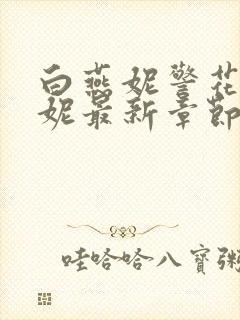 白燕妮警花
妮最新章節
哇哈哈八寶粥